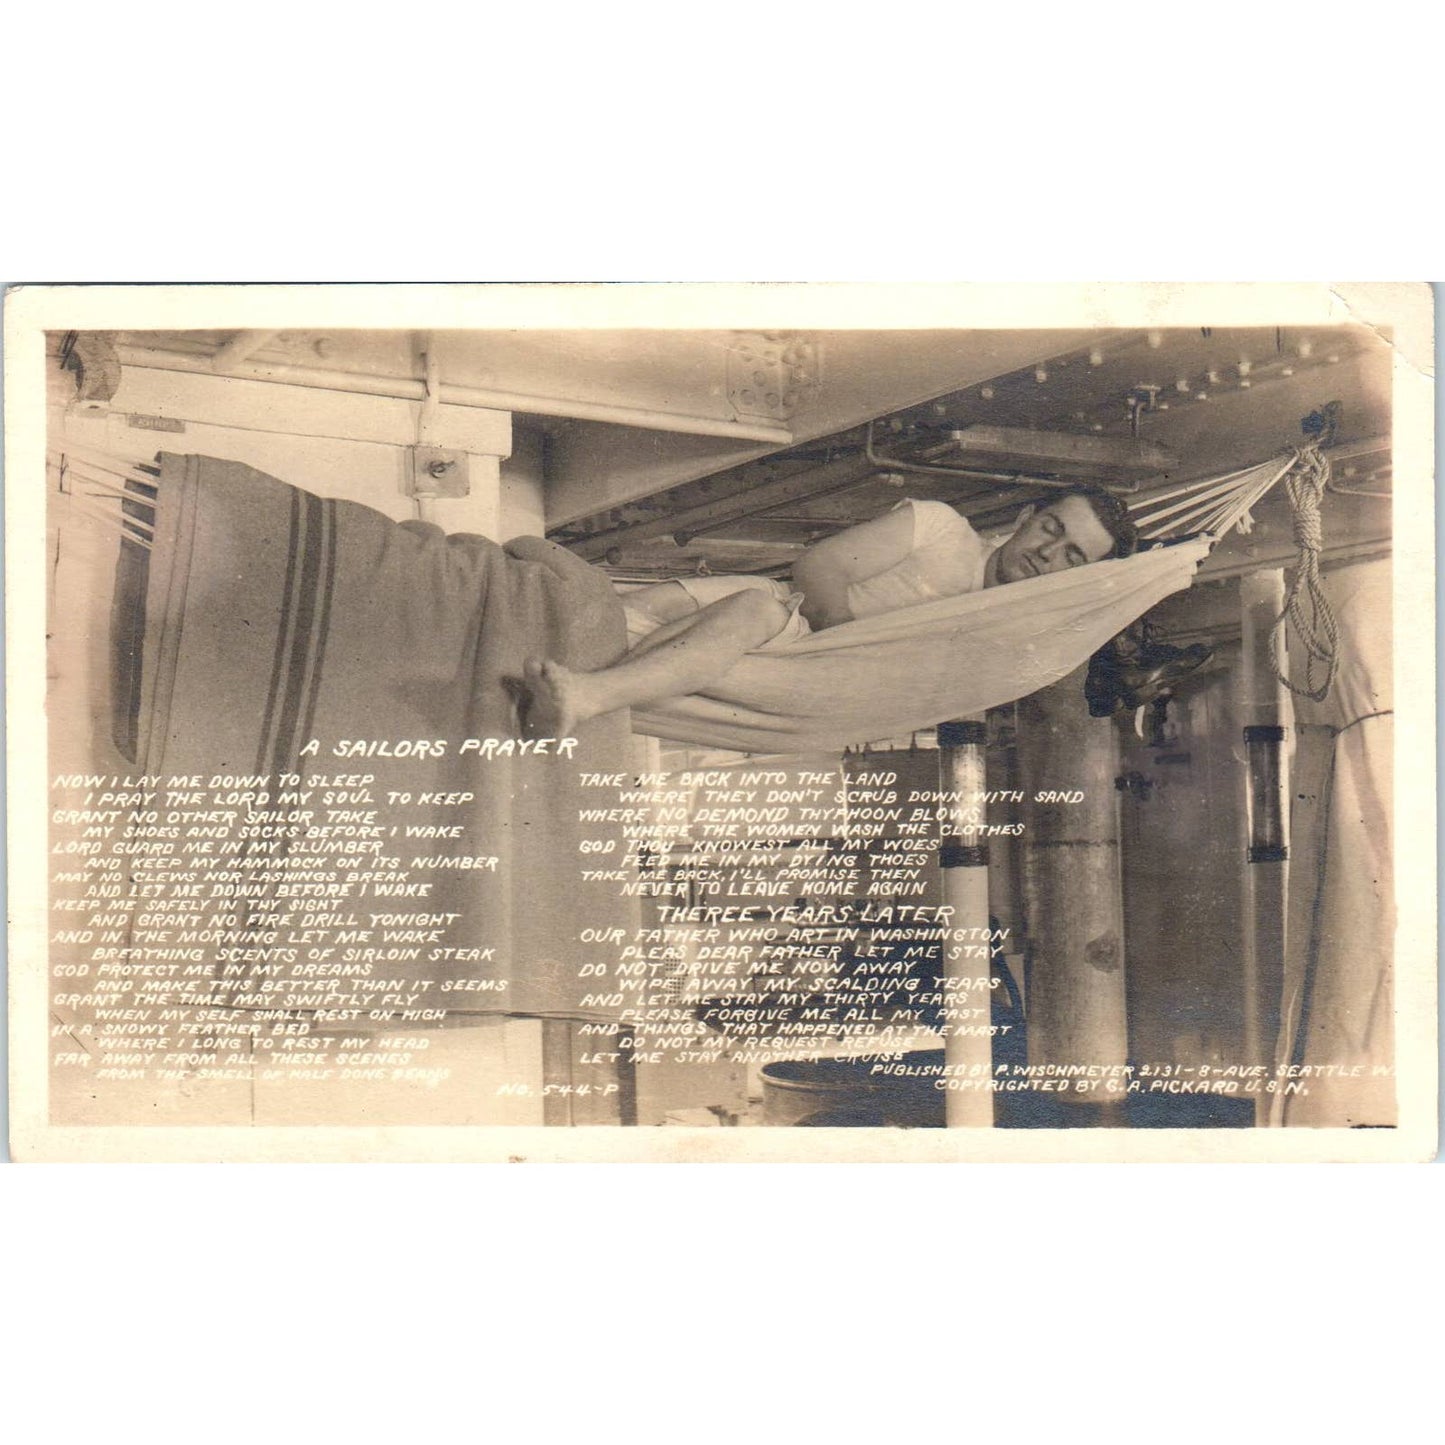 A SAILORS PRAYER
NOW I LAY ME DOWN TO SLEEP
I PRAY THE LORD MY SOUL TO KEEP
GRANT NO OTHER SAILOR TAKE
MY SHOES AND SOCKS BEFORE I WAKE
LORD GUARD ME IN MY SLUMBER
AND KEEP MY HAMMOCK ON ITS NUMBER
MAY NO CLEWS NOR LASHINGS BREAK
AND LET ME DOWN BEFORE I WAKE
KEEP ME SAFELY IN THY SIGHT
AND GRANT NO FIRE DRILL TONIGHT
AND IN THE MORNING LET ME WAKE
BREATHING SCENTS OF SIRLOIN STEAK
GOD PROTECT ME IN MY DREAMS
AND MAKE THIS BETTER THAN IT SEEMS
GRANT THE TIME MAY SWIFTLY FLY
WHEN MY SELF SHALL REST ON HIGH
IN A SNOWY FEATHER BED
WHERE I LONG TO REST MY HEAD
FAR AWAY FROM ALL THESE SCENES
FROM THE SMELL OF HALF DONE BEANS
TAKE ME BACK INTO THE LAND
WHERE THEY DON'T SCRUB DOWN WITH SAND
WHERE NO DEMOND THYPHOON BLOWS
WHERE THE WOMEN WASH THE CLOTHES
GOD THOU KNOWEST ALL MY WOES
FEED ME IN MY DYING THOES
TAKE ME BACK, I'LL PROMISE THEN
NEVER TO LEAVE HOME AGAIN
THEREE YEARS LATER
OUR FATHER WHO ART IN WASHINGTON
PLEAS DEAR FATHER LET ME STAY
DO NOT DRIVE ME NOW AWAY
WIPE AWAY MY SCALDING TEARS
AND LET ME STAY MY THIRTY YEARS
PLEASE FORGIVE ME ALL MY PAST
AND THINGS THAT HAPPENED AT THE MAST
DO NOT MY REQUEST REFUSE
LET ME STAY ANOTHER CRUISE
PUBLISHED BY P. WISCHMEYER 2131-8-AVE. SEATTLE W
COPYRIGHTED BY G. A. PICKARD U.S.N.
NO. 544-P